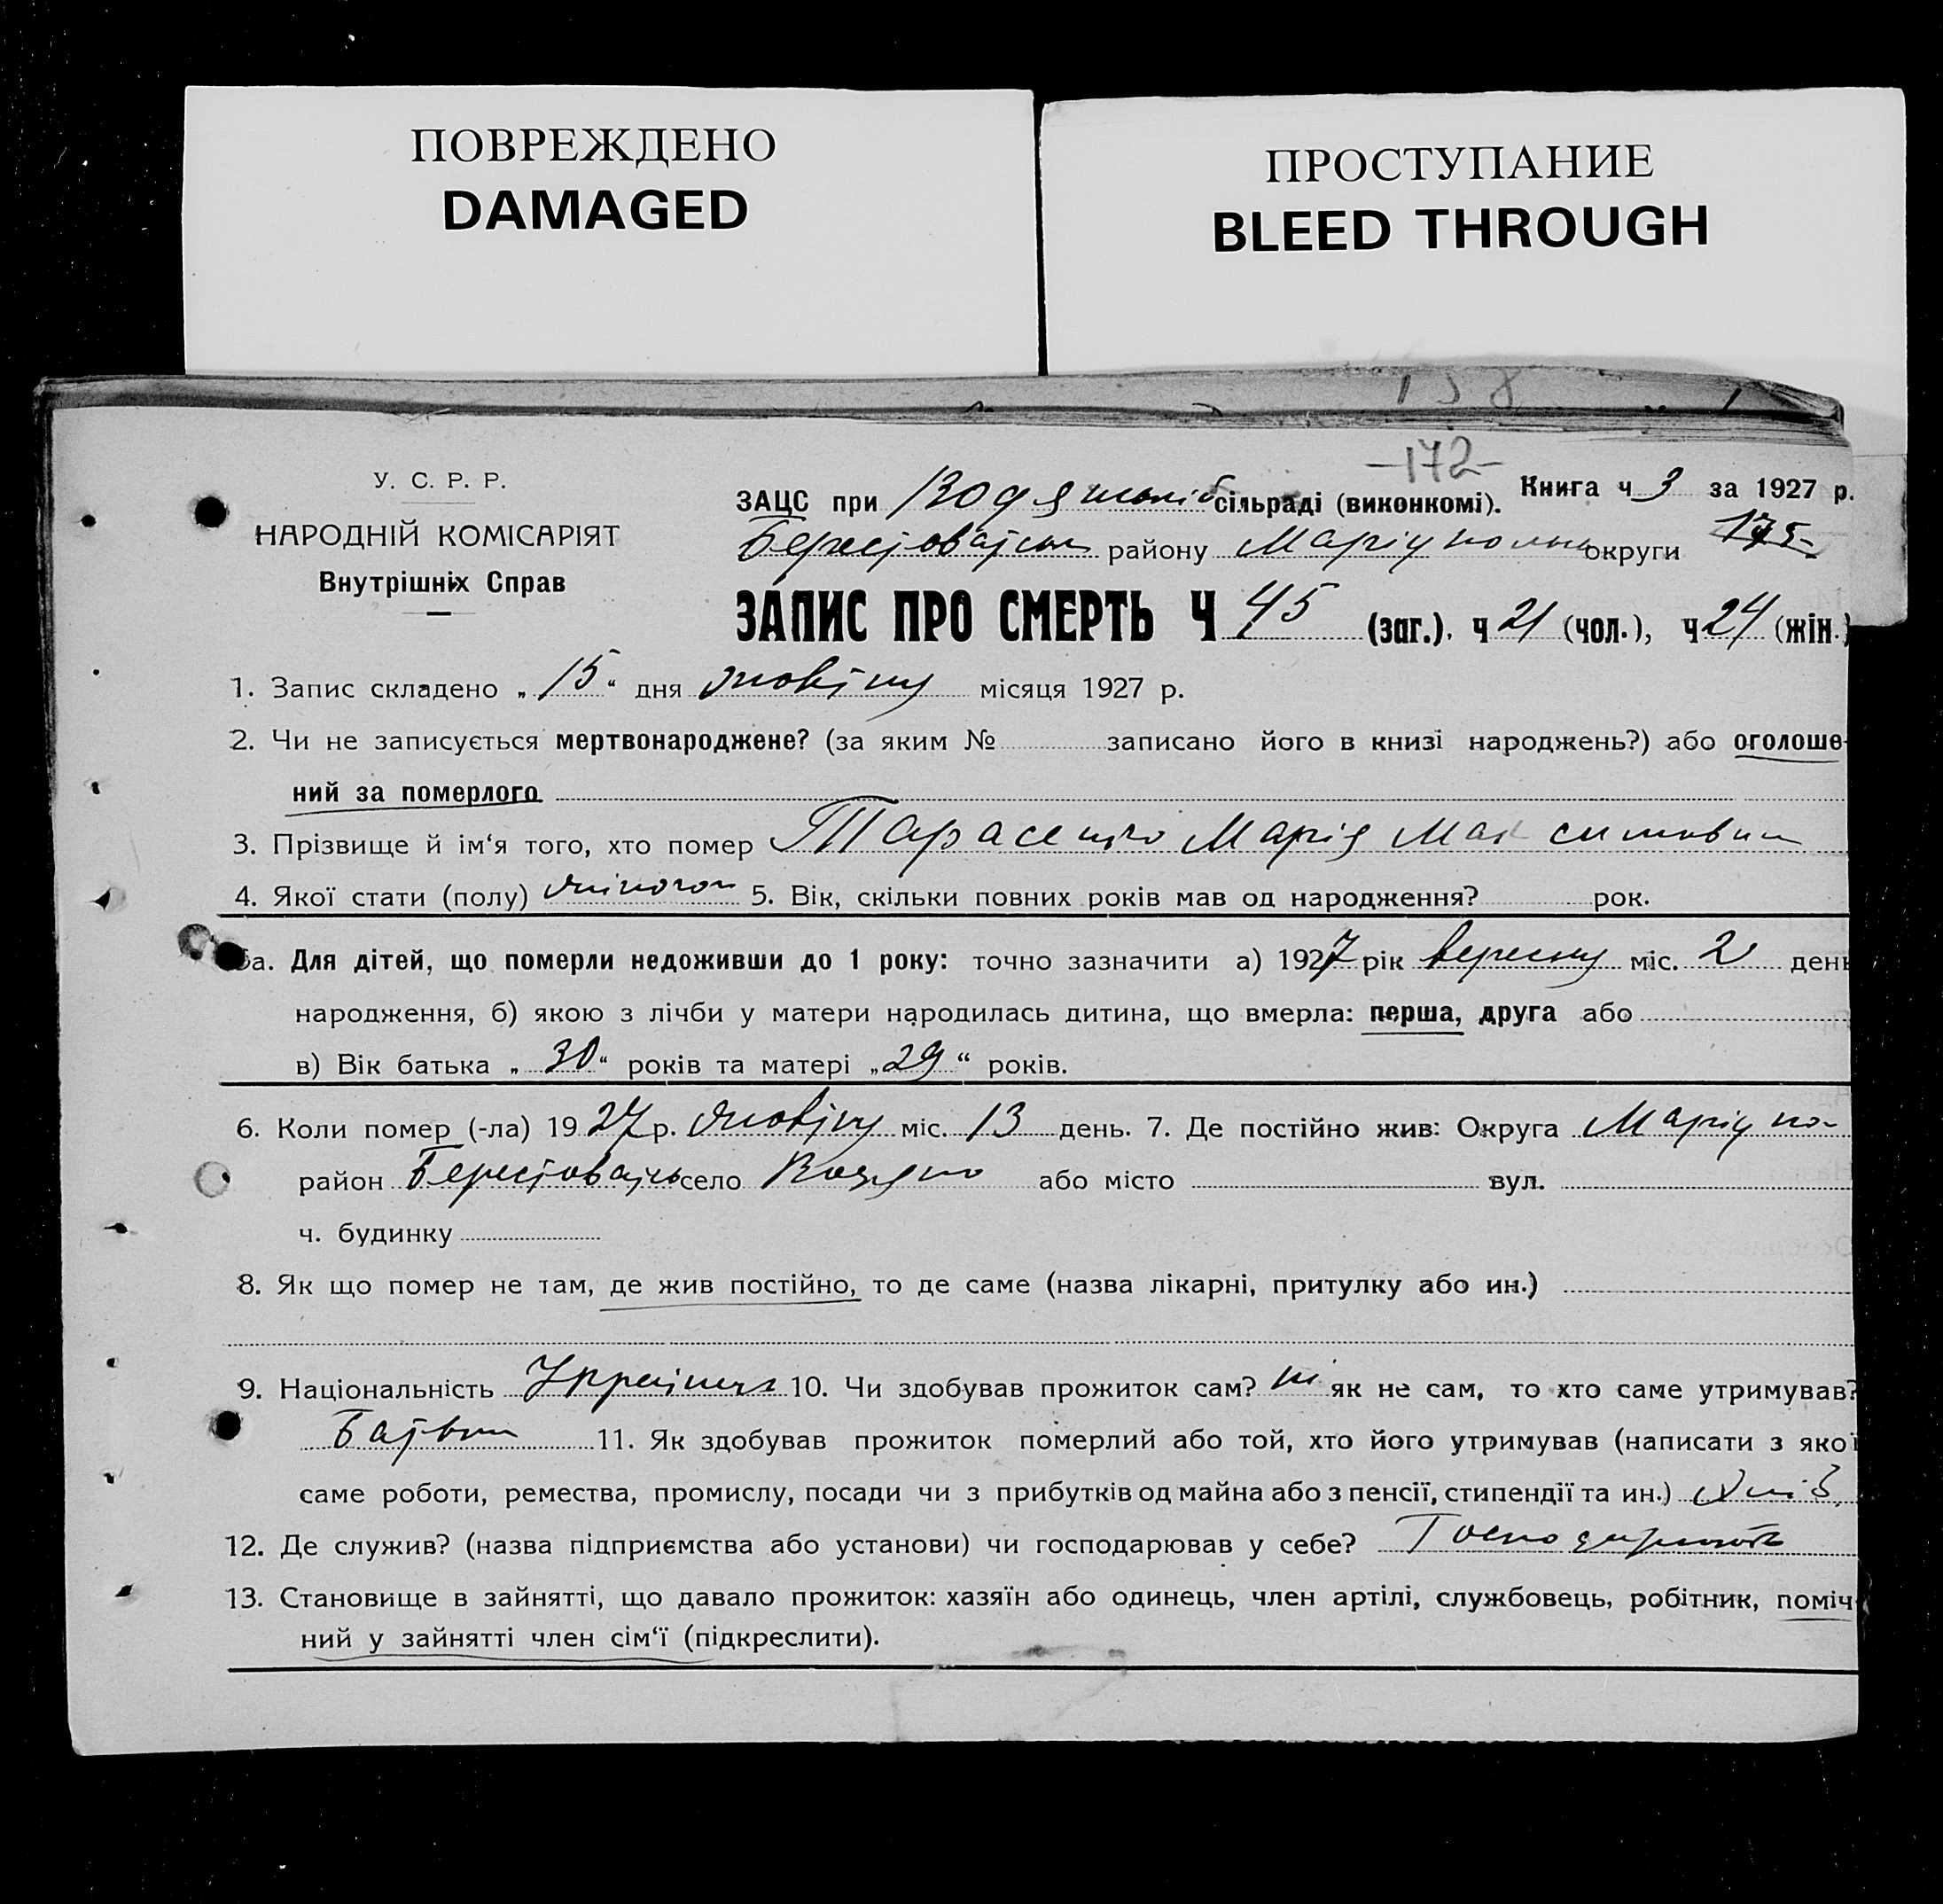 ПОВРЕЖДЕНО
DAMAGED
ПРОСТУПАНИЕ
BLEED THROUGH
158
-172-
У. С. Р. Р.
НАРОДНІЙ КОМІСАРІЯТ
Внутрішніх Справ
ЗАЦС при Водянській сільраді (виконкомі). Книга ч 3 за 1927 р.
Берестоватськ району Маріупольськ округи 175
ЗАПИС ПРО СМЕРТЬ Ч 45 (заг.). ч 21 (чол.), ч 24 (жін.)
1. Запис складено „ 15 “ дня жовтня місяця 1927 р.
2. Чи не записується мертвонароджене? (за яким № записано його в книзі народжень?) або оголоше-
ний за померлого
3. Прізвище й ім‘я того, хто помер Тарасенко Марія Максимовна
4. Якої стати (полу) жіночої 5. Вік, скільки повних років мав од народження? рок.
5а. Для дітей, що померли недоживши до 1 року: точно зазначити а) 1927 рік вересня міс. 2 день
народження, б) якою з лічби у матери народилась дитина, що вмерла: перша, друга або
в) Вік батька „ 30 “ років та матері „ 29 “ років.
6. Коли помер (-ла) 19 27 р. жовтня міс. 13 день. 7. Де постійно жив: Округа Маріупо-
район Берестоватськ село Водяно або місто вул.
ч. будинку
8. Як що помер не там, де жив постійно, то де саме (назва лікарні, притулку або ин.)
9. Національність 10. Чи здобував прожиток сам? ні як не сам, то хто саме утримував?
Батьки 11. Як здобував прожиток померлий або той, хто його утримував (написати з якої
саме роботи, ремества, промислу, посади чи з прибутків од майна або з пенсії, стипендії та ин.)
12. Де служив? (назва підприємства або установи) чи господарював у себе?
13. Становище в зайнятті, що давало прожиток: хазяїн або одинець, член артілі, службовець, робітник, поміч-
ний у зайнятті член сім‘ї (підкреслити).